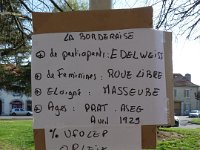 LA BORDERAISE
+ de participants: EDELWEISS
+ de Féminines: ROUE LIBRE
+ Eloigné: MASSEUBE
+ Agés: PRAT. ASEG
Avril 1929
% UFOLEP